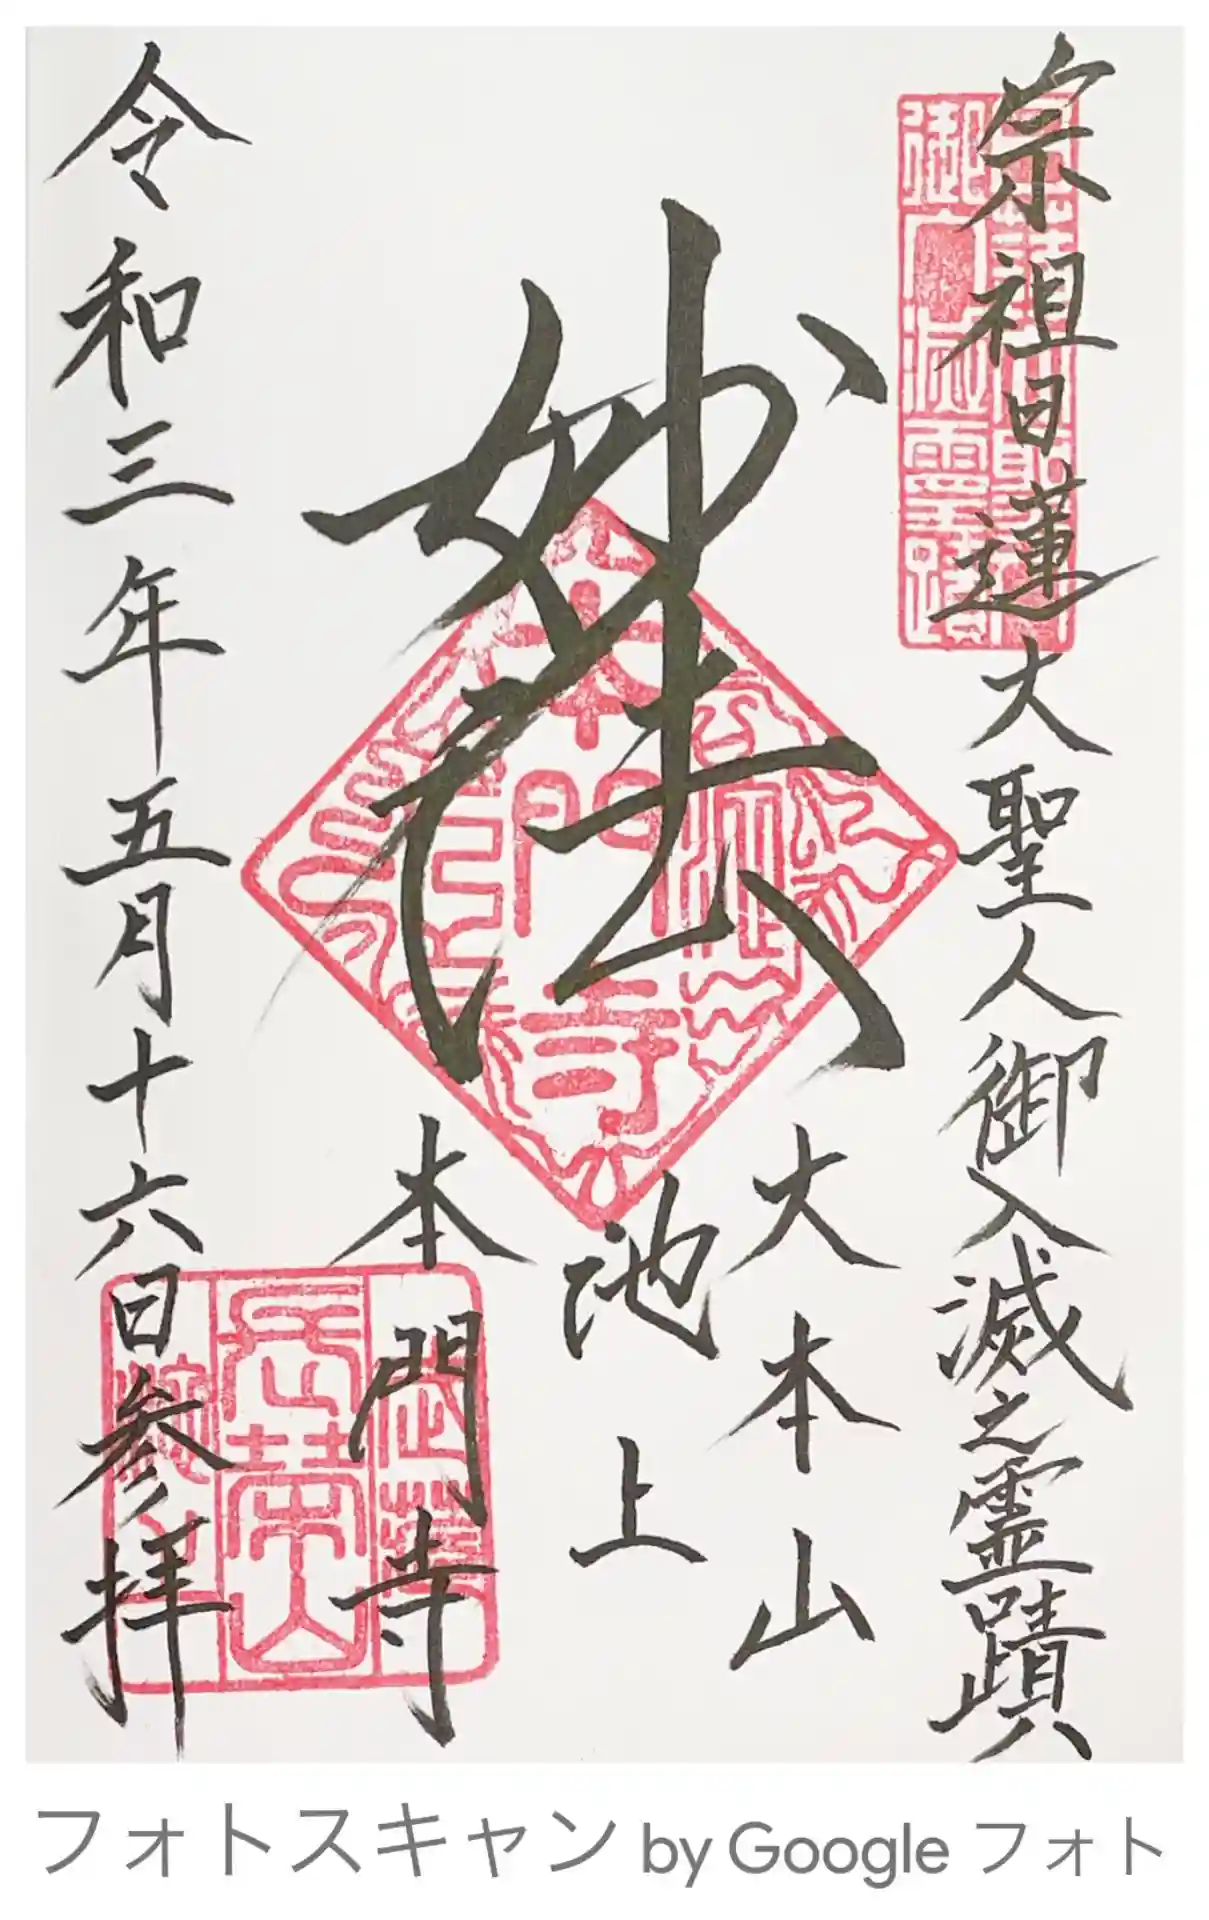 宗祖日蓮大聖人御入滅之霊蹟
妙法
大本山
池上
本門寺
令和三年五月十六日参拝
本門寺
フォトスキャン by Google フォト